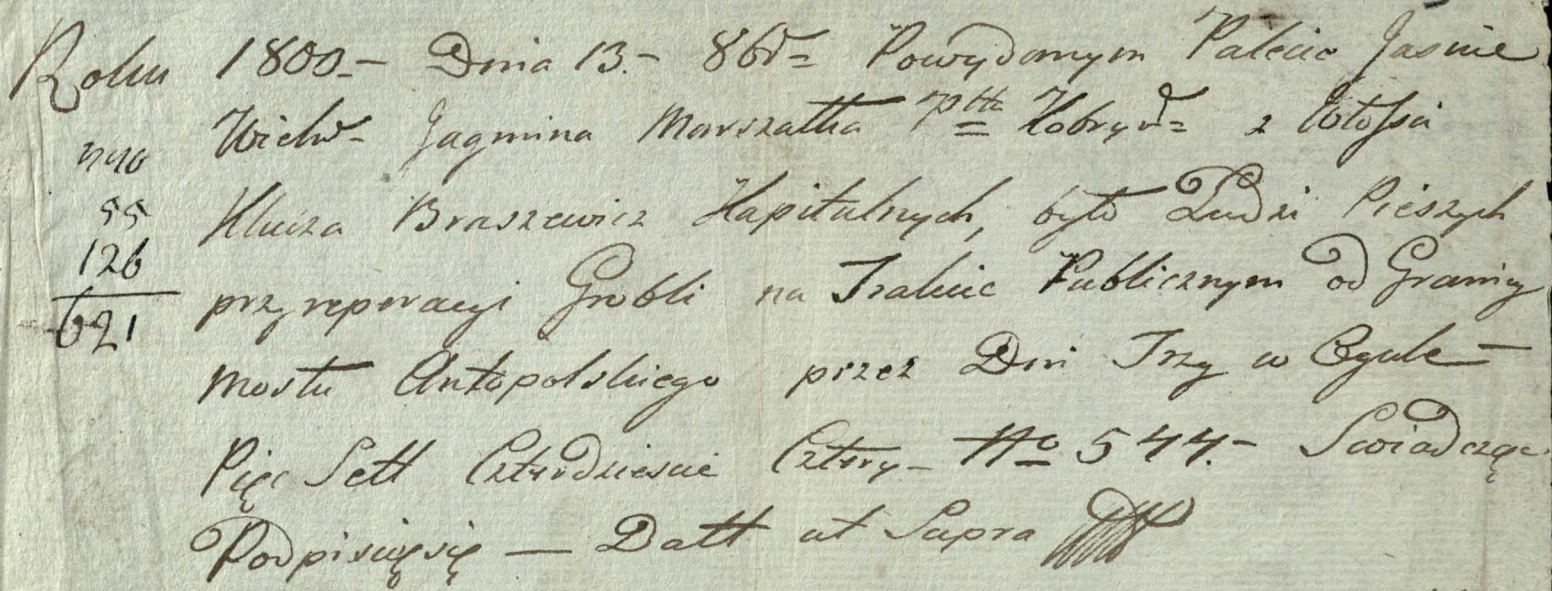 Roku 1800.- Dnia 13.- 8bra Powydanym Palecie Jasnie
Wielm- Jagmina Marszałka Pttu Kobryn z Włości
440
Klucza Braszewicz Kapitulnych, było Ludzi Pieszych
55
126
przy reperacyi Grobli na Trakcie Publicznym od Granicy
621
mostu Antopolskiego przez Dni Trzy w Ogule -
Pięc Sett Czterdziescie Cztery - No 544.- Swiadcząc
Podpisuięsię — Datt ut Supra